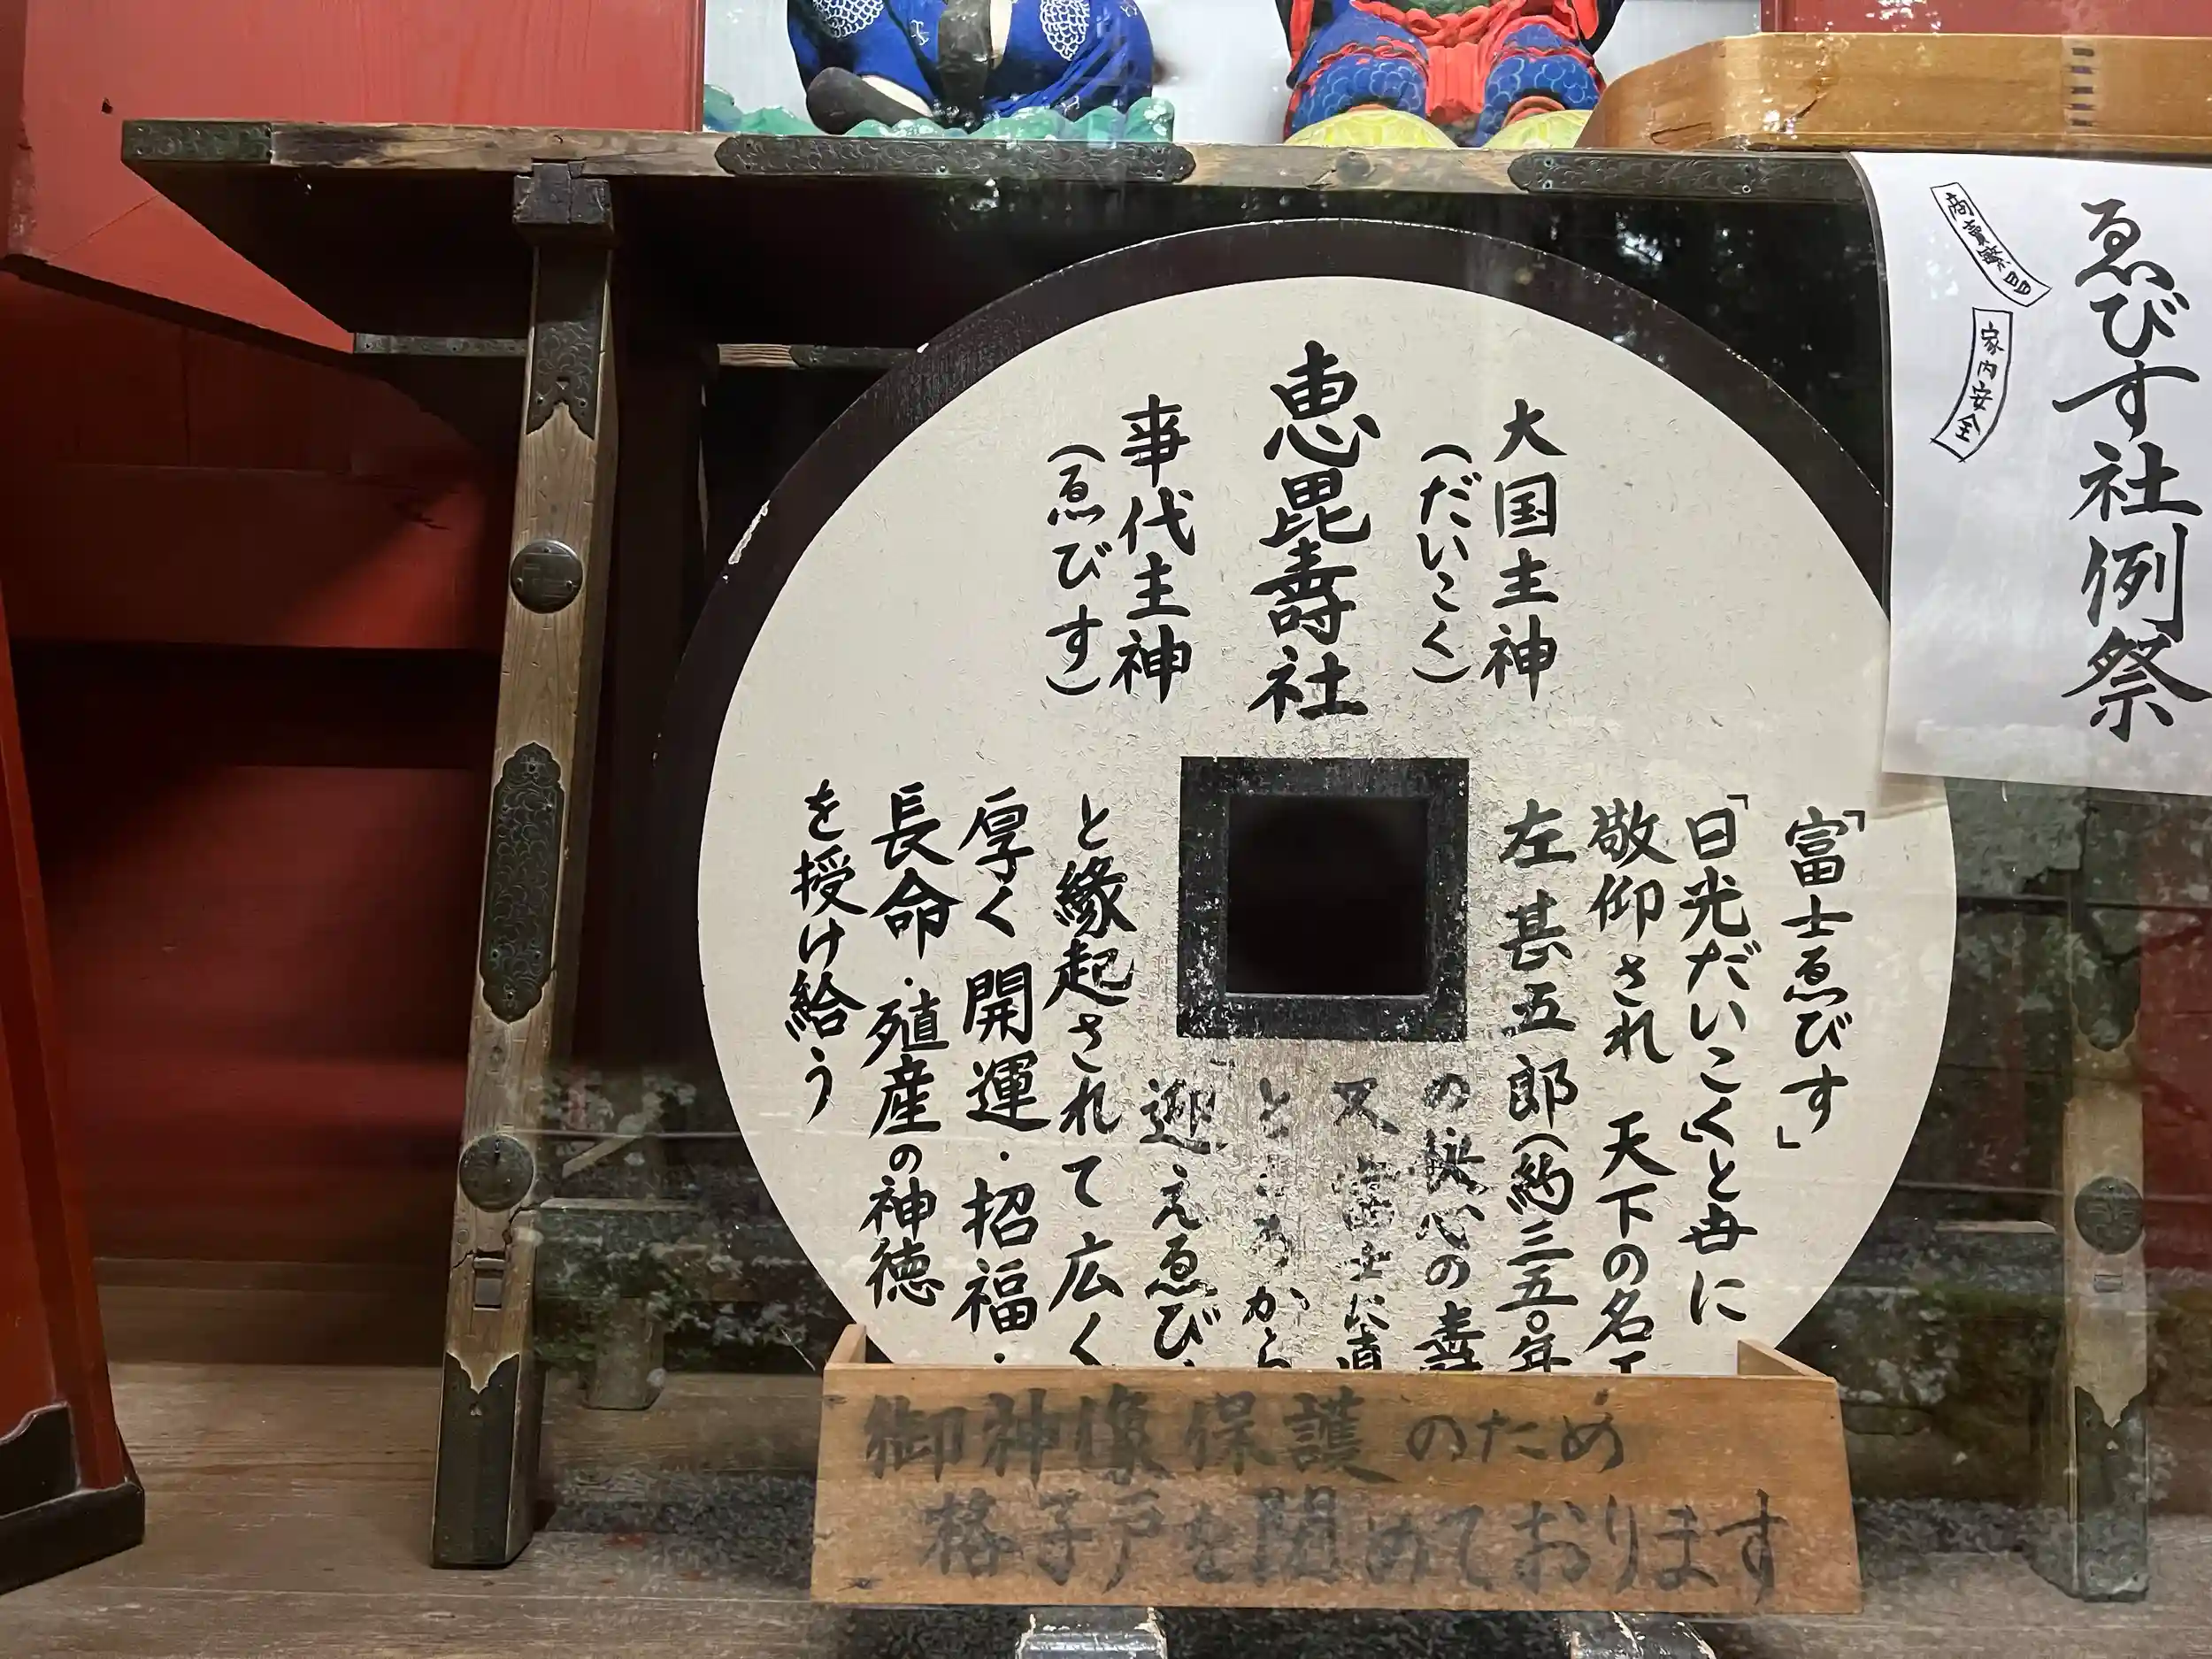 ゑびす社例祭
商売繁昌
家内安全
大国主神
(だいこく)
恵毘壽社
事代主神
(ゑびす)
「富士ゑびす」
「日光だいこく」と毋に
敬仰され 天下の名工
左甚五郎(約三五〇年
の良心の
又富士に直
ところから
迎えゑび
と縁起されて広く
厚く 開運・招福・
長命・殖産の神徳
を授け給う
御神像保護のため
格子戸を閉めております